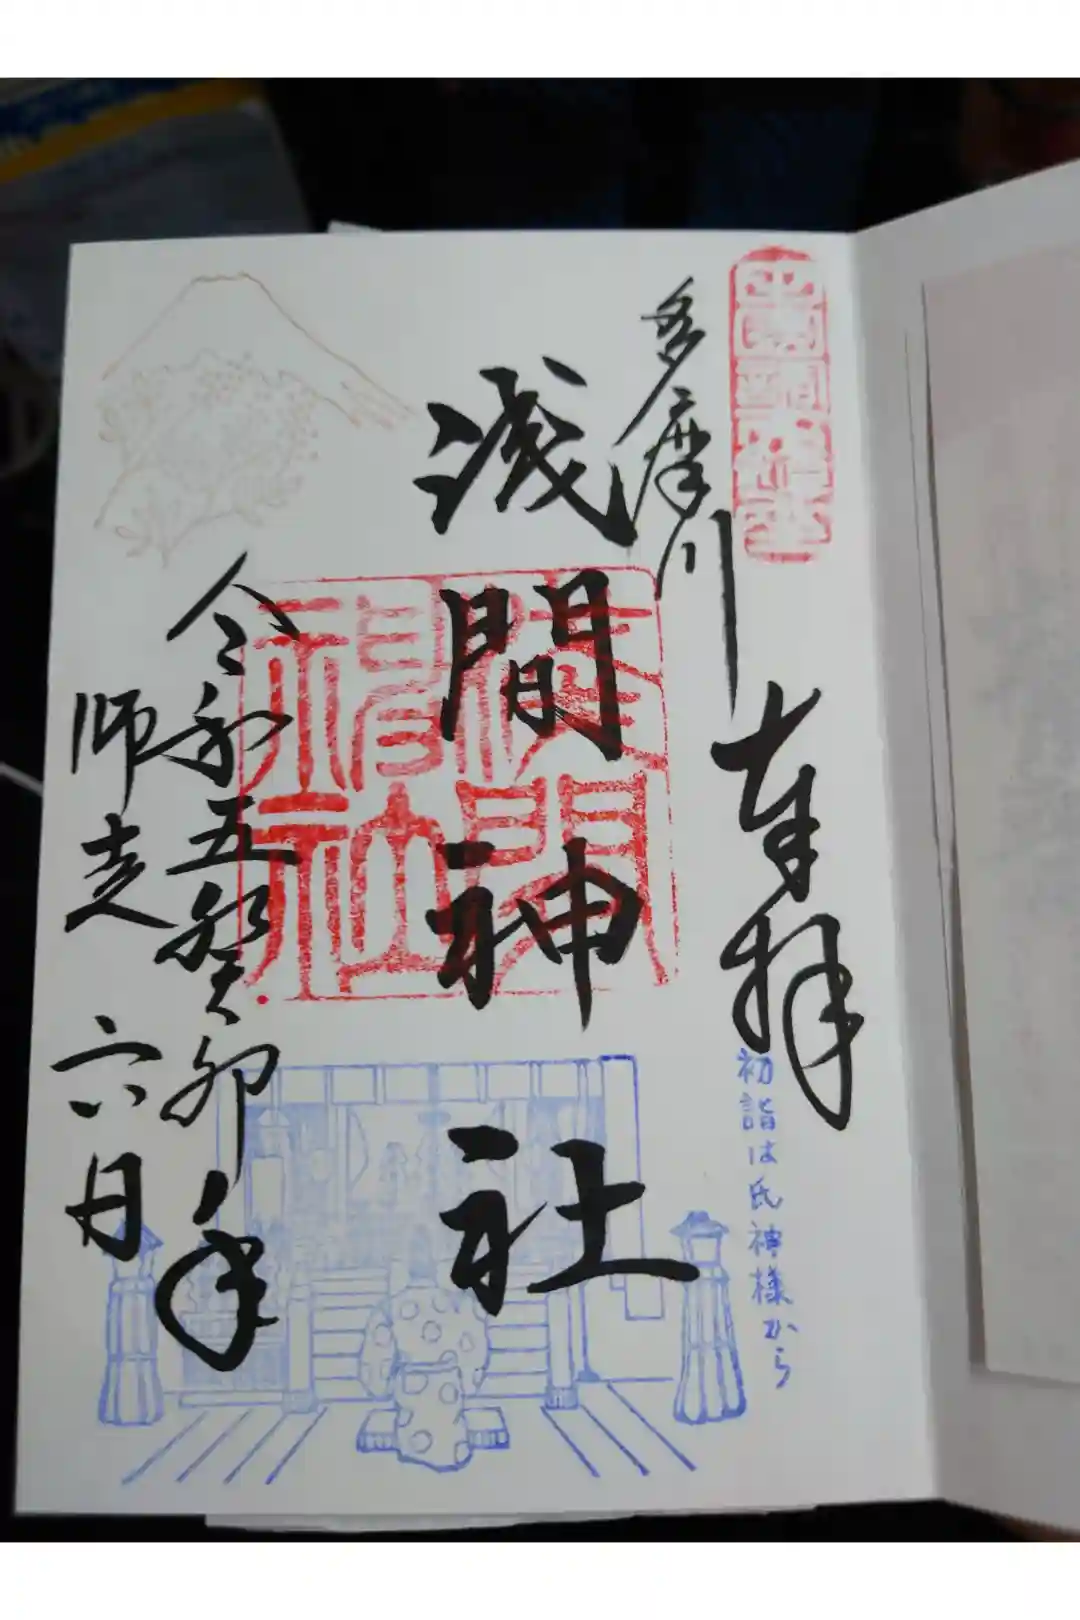 奉拝
初詣は氏神様から
多摩川
浅間神社
令和五癸卯年
師走 六日